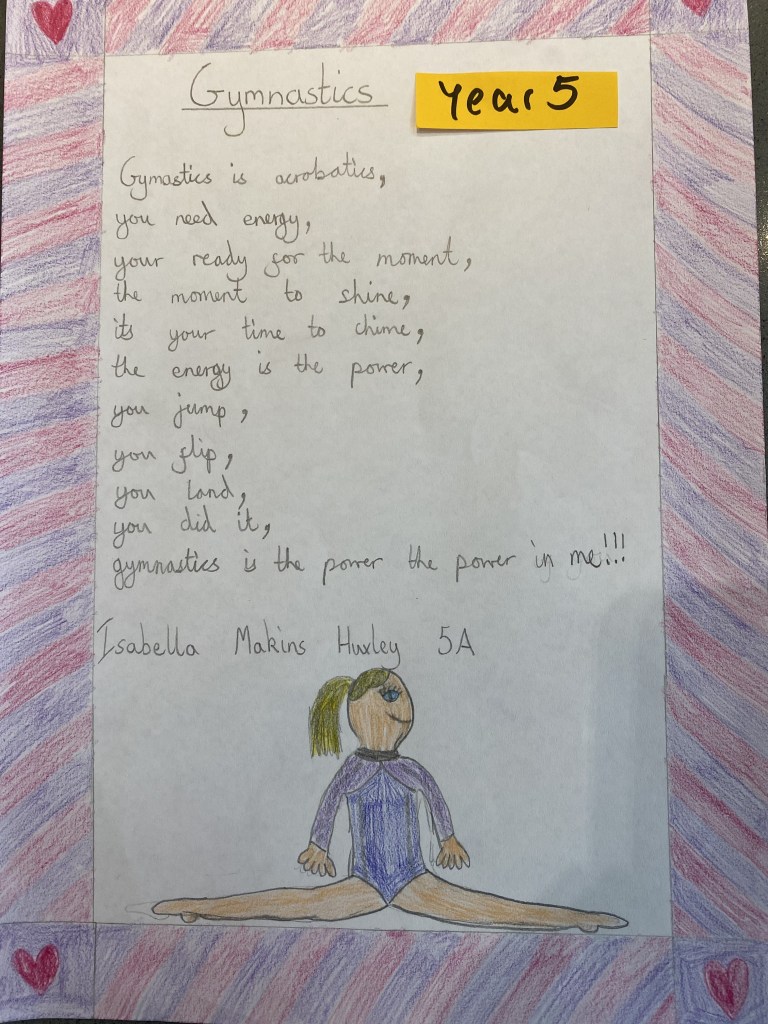 Gymnastics
Year 5
Gymastics is acrobatics,
you need energy,
your ready for the moment,
the moment to shine,
its your time to chime,
the energy is the power,
you jump,
you flip,
you land,
you did it,
gymnastics is the power the power in me!!!
Isabella Makins Huxley 5A